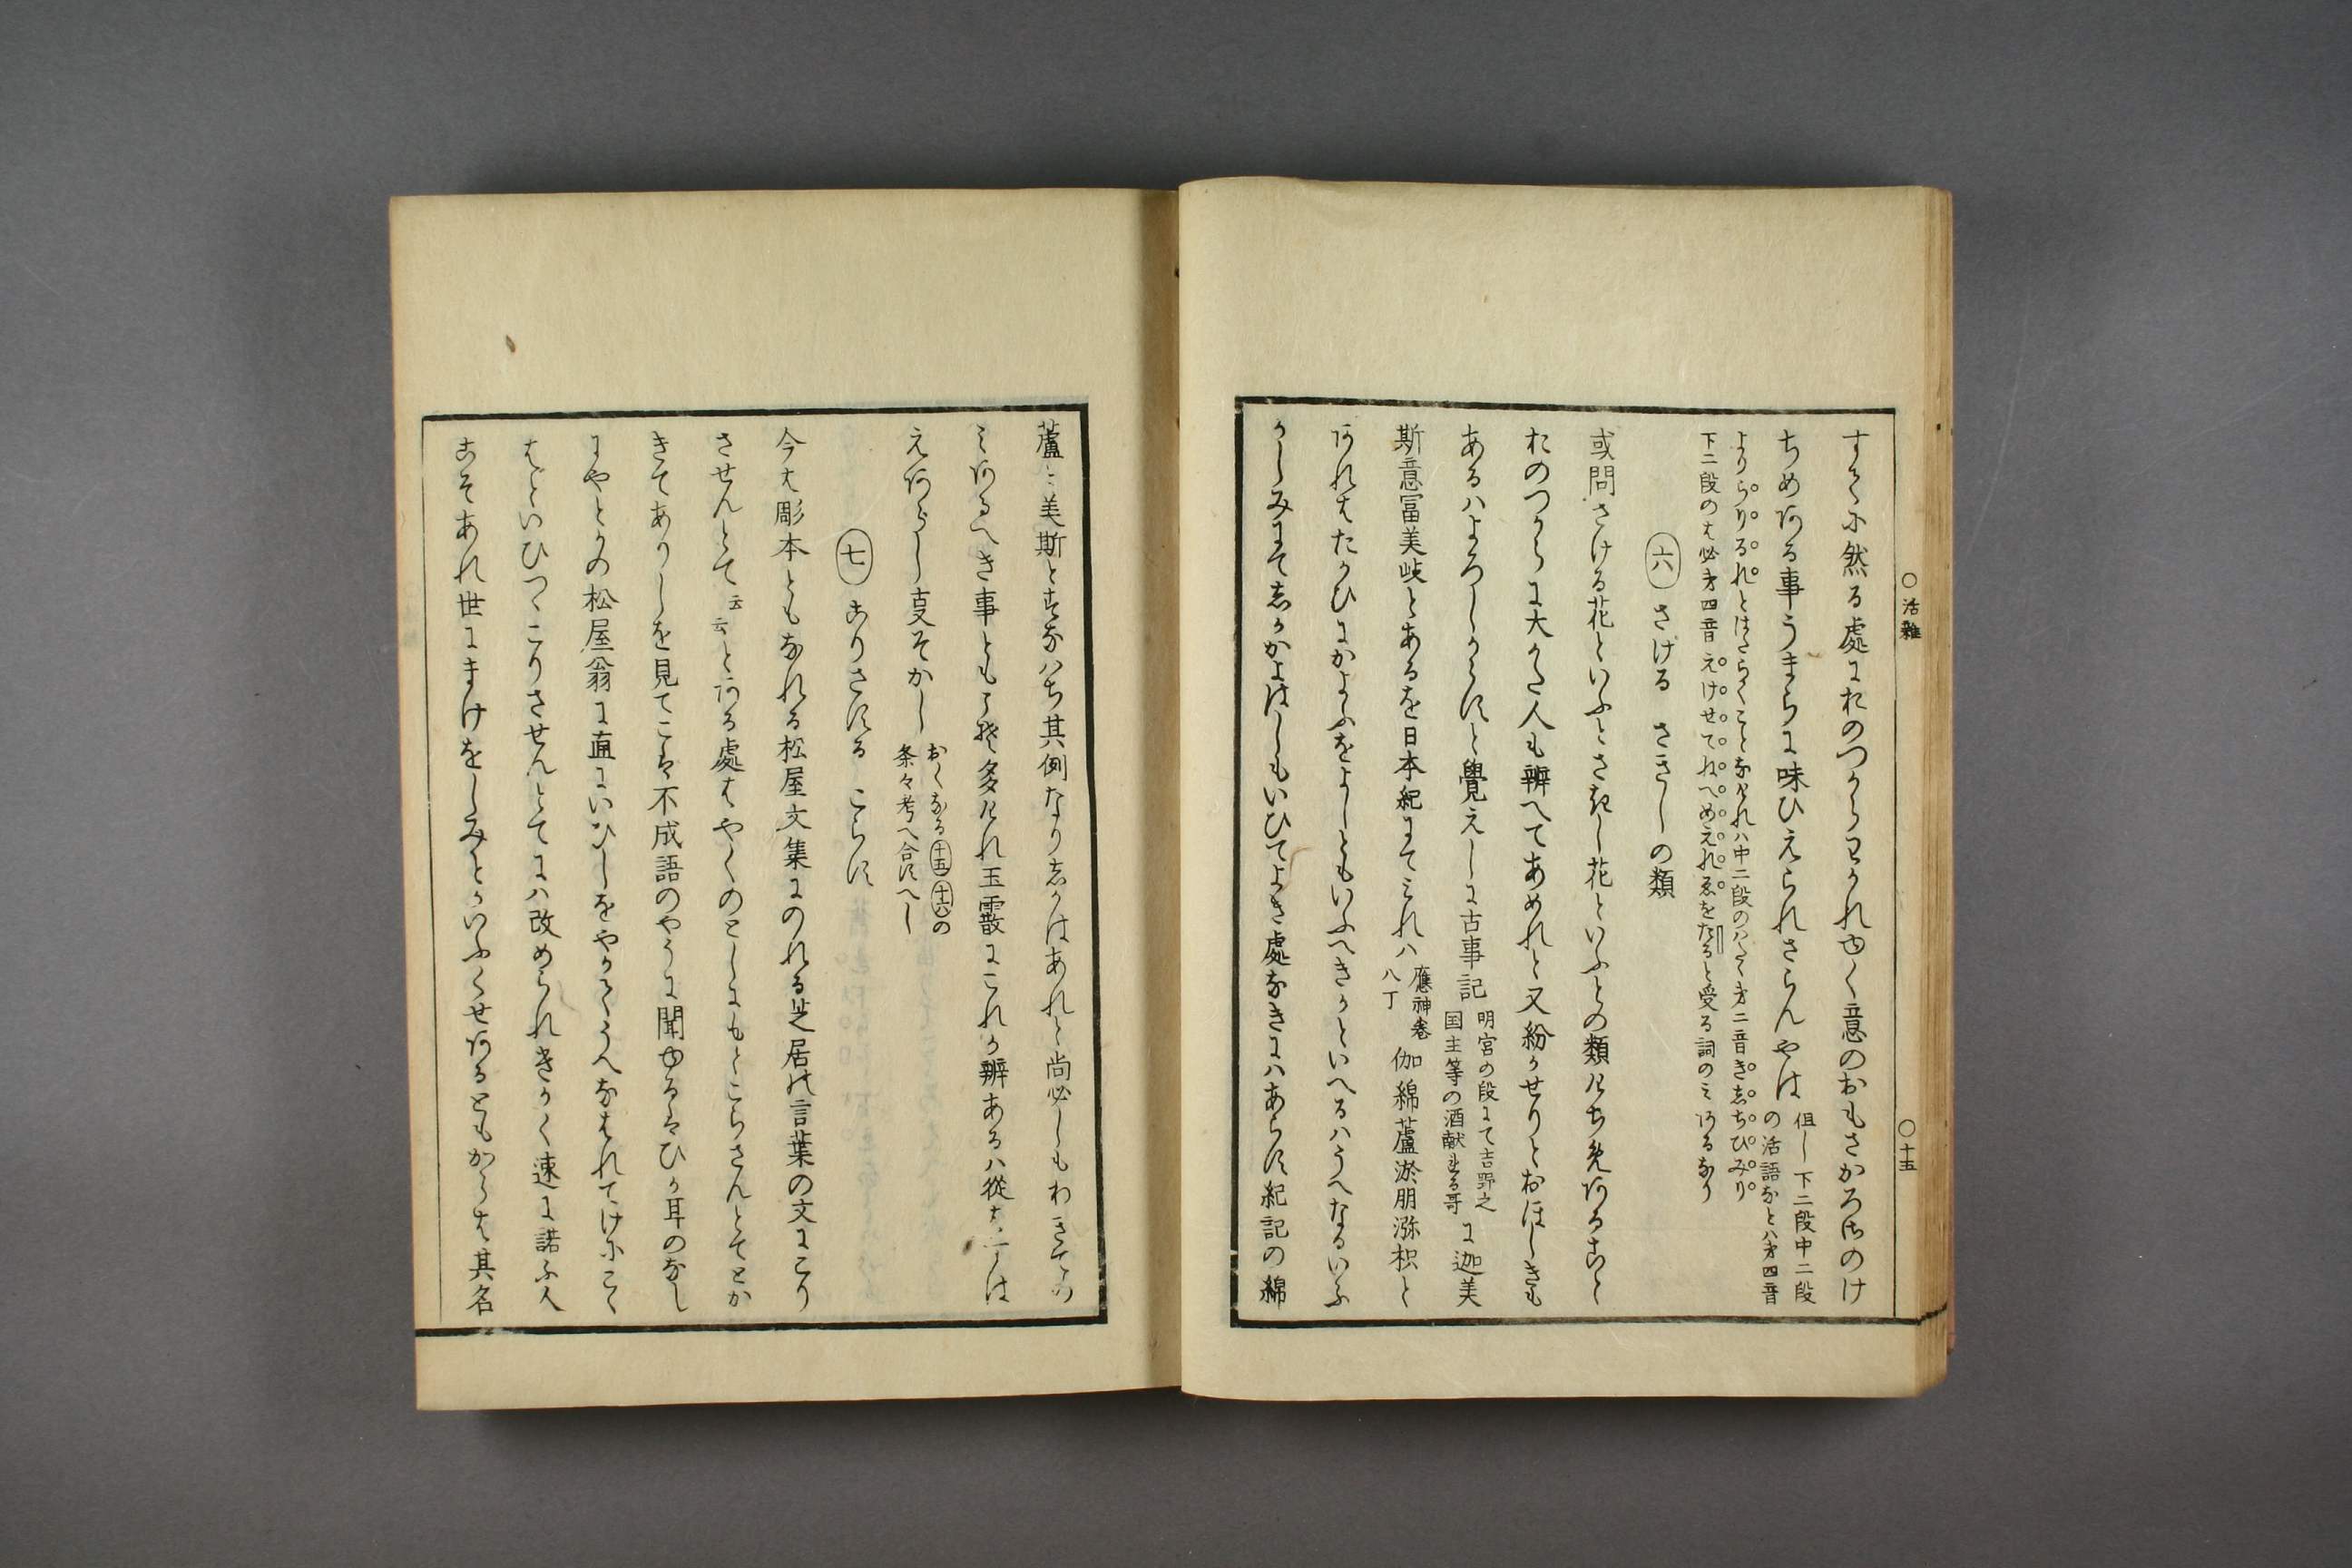 ○活雑
○十五
するに然る處におのつからわかれゆく意のおもさかろさのけ
ちめある事うまらに味ひえられさらんやは
但し下二段中二段
の活語なとハ才四音
よりらりるれとはたらくことなかれハ中二段のハ才二音きしちひみり
下二段のは必才四音えけせてねへめえれゑをたると受る詞のミあるなり
六 さける さきしの類
或問さける花といふとさきし花といふとの類けちめあること
おのつからに大かた人も辨へてあめれと又紛かせりとおほしきも
あるハよろしからすと覺えしに古事記
明宮の段にて吉野之
国主等の酒献れる哥
に迦美
斯意冨美岐とあるを日本紀にてミれハ
應神巻
八丁
伽綿蘆淤朋瀰枳と
あれはたかひにかよふをよしともいふへきかといへるハうへなるいふ
かしみにてしかかよはしもいひてよき處なきにハあらす紀記の綿
蘆と美斯とすなハち其例なりしかはあれと尚必しもわきての
ミあるへき事ともそ多けれ玉霰にこれか辨あるハ從はては
えあらし支そかし
おくなる十五十六の
条々考へ合すへし
七 こりさする こらす
今は彫本ともなれる松屋文集にのれる芝居の言葉の文にこり
させんとて云云とある處はやくのとしにもとこらさんとてとか
きてありしを見てこは不成語のやうに聞ゆるはひか耳のなし
にやとかの松屋翁に直にいひしをやかてうへなはれてけにこら
はといひつゝこりさせんとてにハ改められきかく速に諾ふ人
こそあれ世にまけをしみとかいふくせあるともからは其名